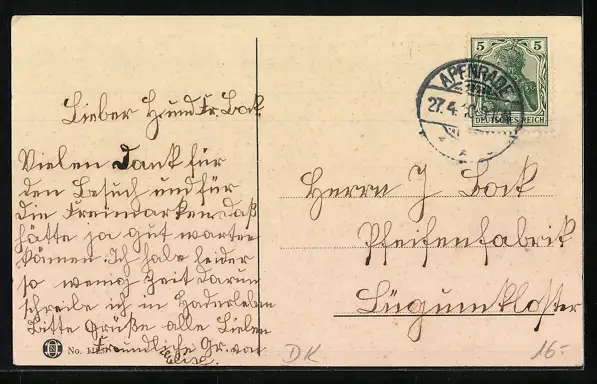 Lieber H. und Fr. Bock
Vielen Dank für
den Besuch und für
die Freimarken, daß
hätte ja gut warten
können. Ich habe leider
so wenig Zeit darum
schreibe ich in Hadersleben
Bitte Grüße alle Lieben
Freundliche Gr. von
Elise.
No.
5 5
DEUTSCHES REICH
APENRADE
27.4.10
Herrn J Bock
Pfeifenfabrik
Lügumkloster
DK
16.-